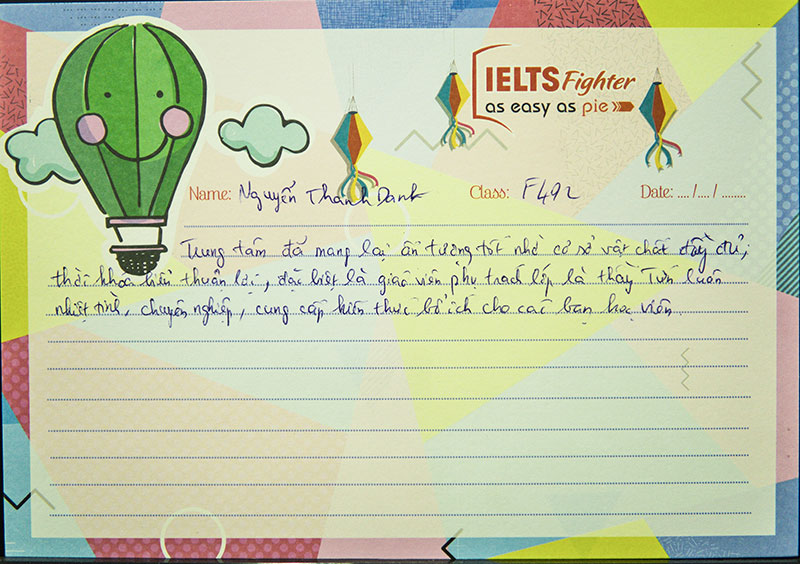 IELTS Fighter
as easy as pie
Name: Nguyễn Thành Danh Class: F492 Date: .... /.... / ........
Trung tâm đã mang lại ấn tượng tốt nhờ cơ sở vật chất đầy đủ,
thời khóa biểu thuận lợi, đặc biệt là giáo viên phụ trách lớp là thầy Tuấn luôn
nhiệt tình, chuyên nghiệp, cung cấp kiến thức bổ ích cho các bạn học viên.